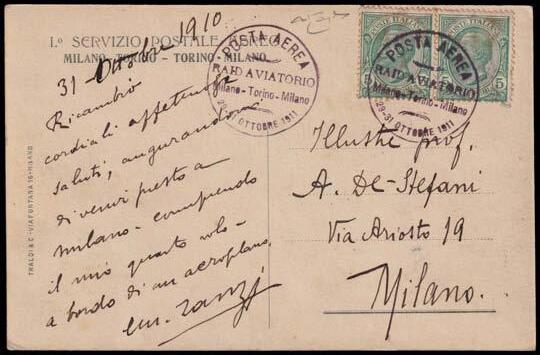 I.º SERVIZIO POSTALE AEREO
MILANO - TORINO - TORINO - MILANO
31 - Ottobre 1910
Ricambio
cordiali affettuosi
saluti, augurandomi
di venir presto a
milano - compiendo
il mio quarto volo -
a bordo di un aeroplano.
TRALDI & C - VIA FONTANA 16 - MILANO
POSTA AEREA
RAID AVIATORIO
Milano - Torino - Milano
29-31 OTTOBRE 1911
POSTE ITALIANE
POSTA AEREA
RAID AVIATORIO
Milano - Torino - Milano
29-31 OTTOBRE 1911
5
Illustre prof.
A. De-Stefani
Via Ariosto 19
Milano.